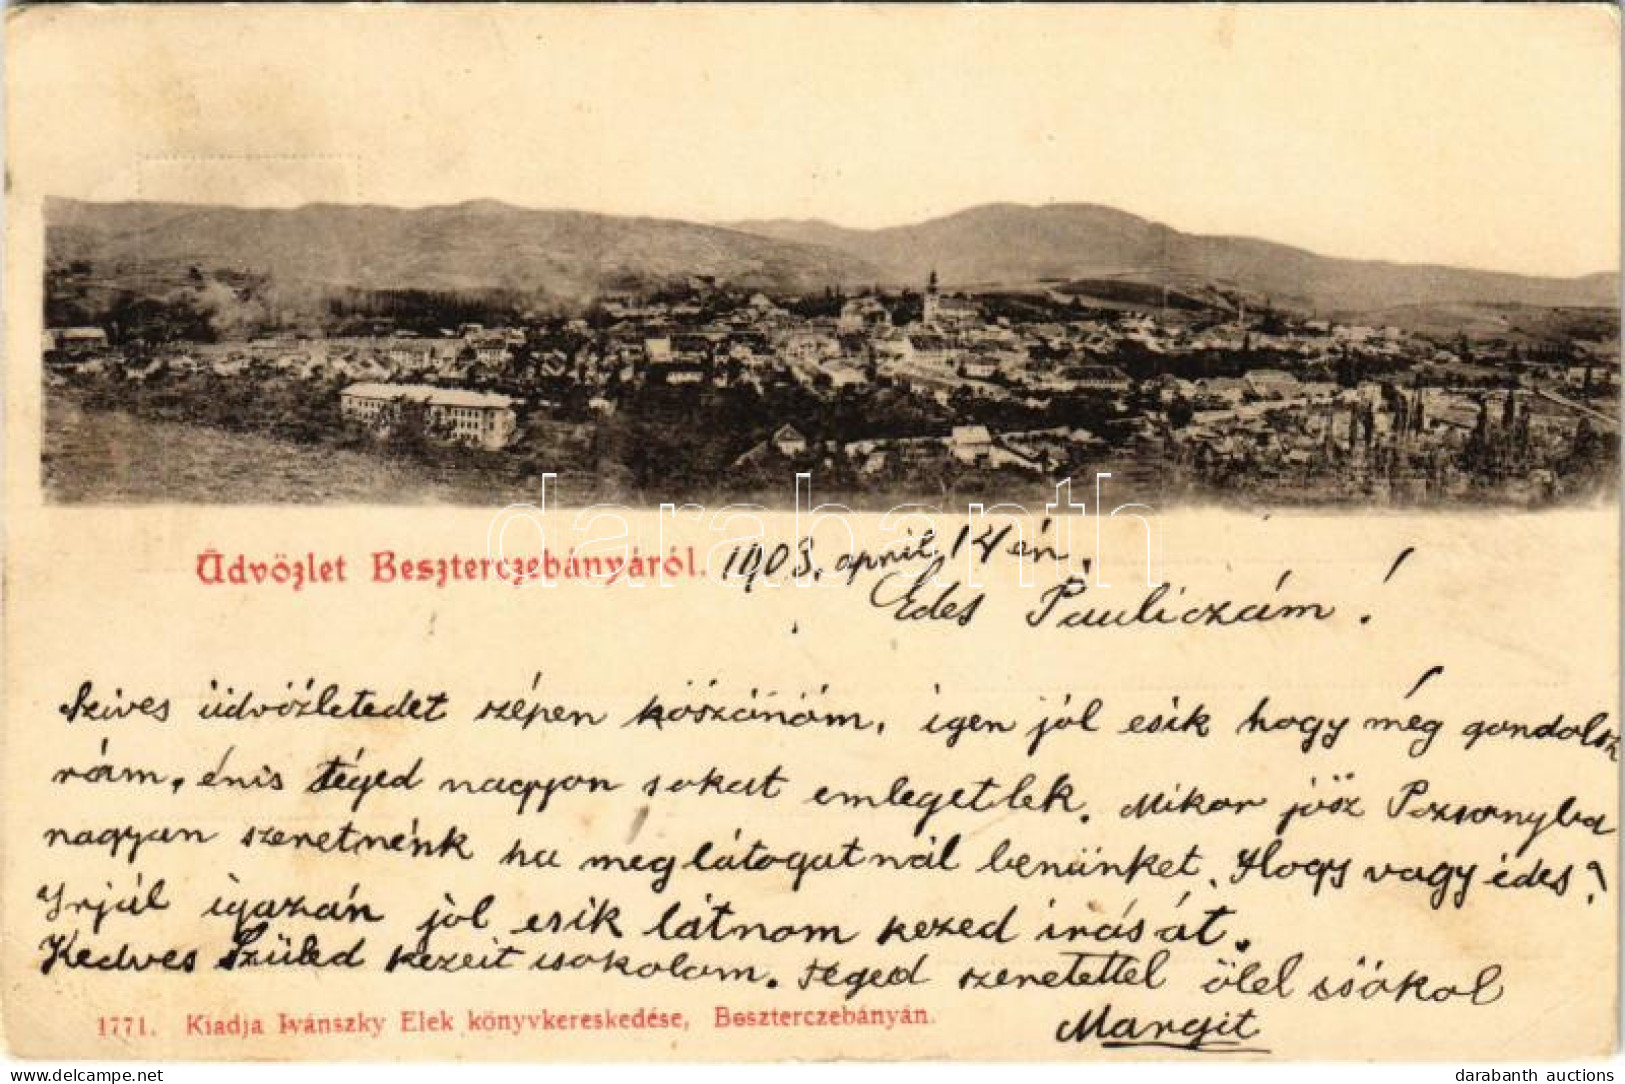 Üdvözlet Beszterczebányáról. 1903. april 14 én.
Edes Pauliczám!
Szives üdvözletedet szépen köszönöm, igen jól esik hogy még gondolsz
rám, énis téged nagyon sokat emlegetlek. Mikor jösz Pozsonyba
nagyon szeretnénk ha meglátogatnál benünket. Hogy vagy édes?
Irjál igazán jól esik látnom kezed irását.
Kedves Szüled kezeit csokolom. téged szeretettel ölel csókol
Margit
1771. Kiadja Ivánszky Elek könyvkereskedése, Beszterczebányán.
darabanth
delcampe.net
darabanth auctions